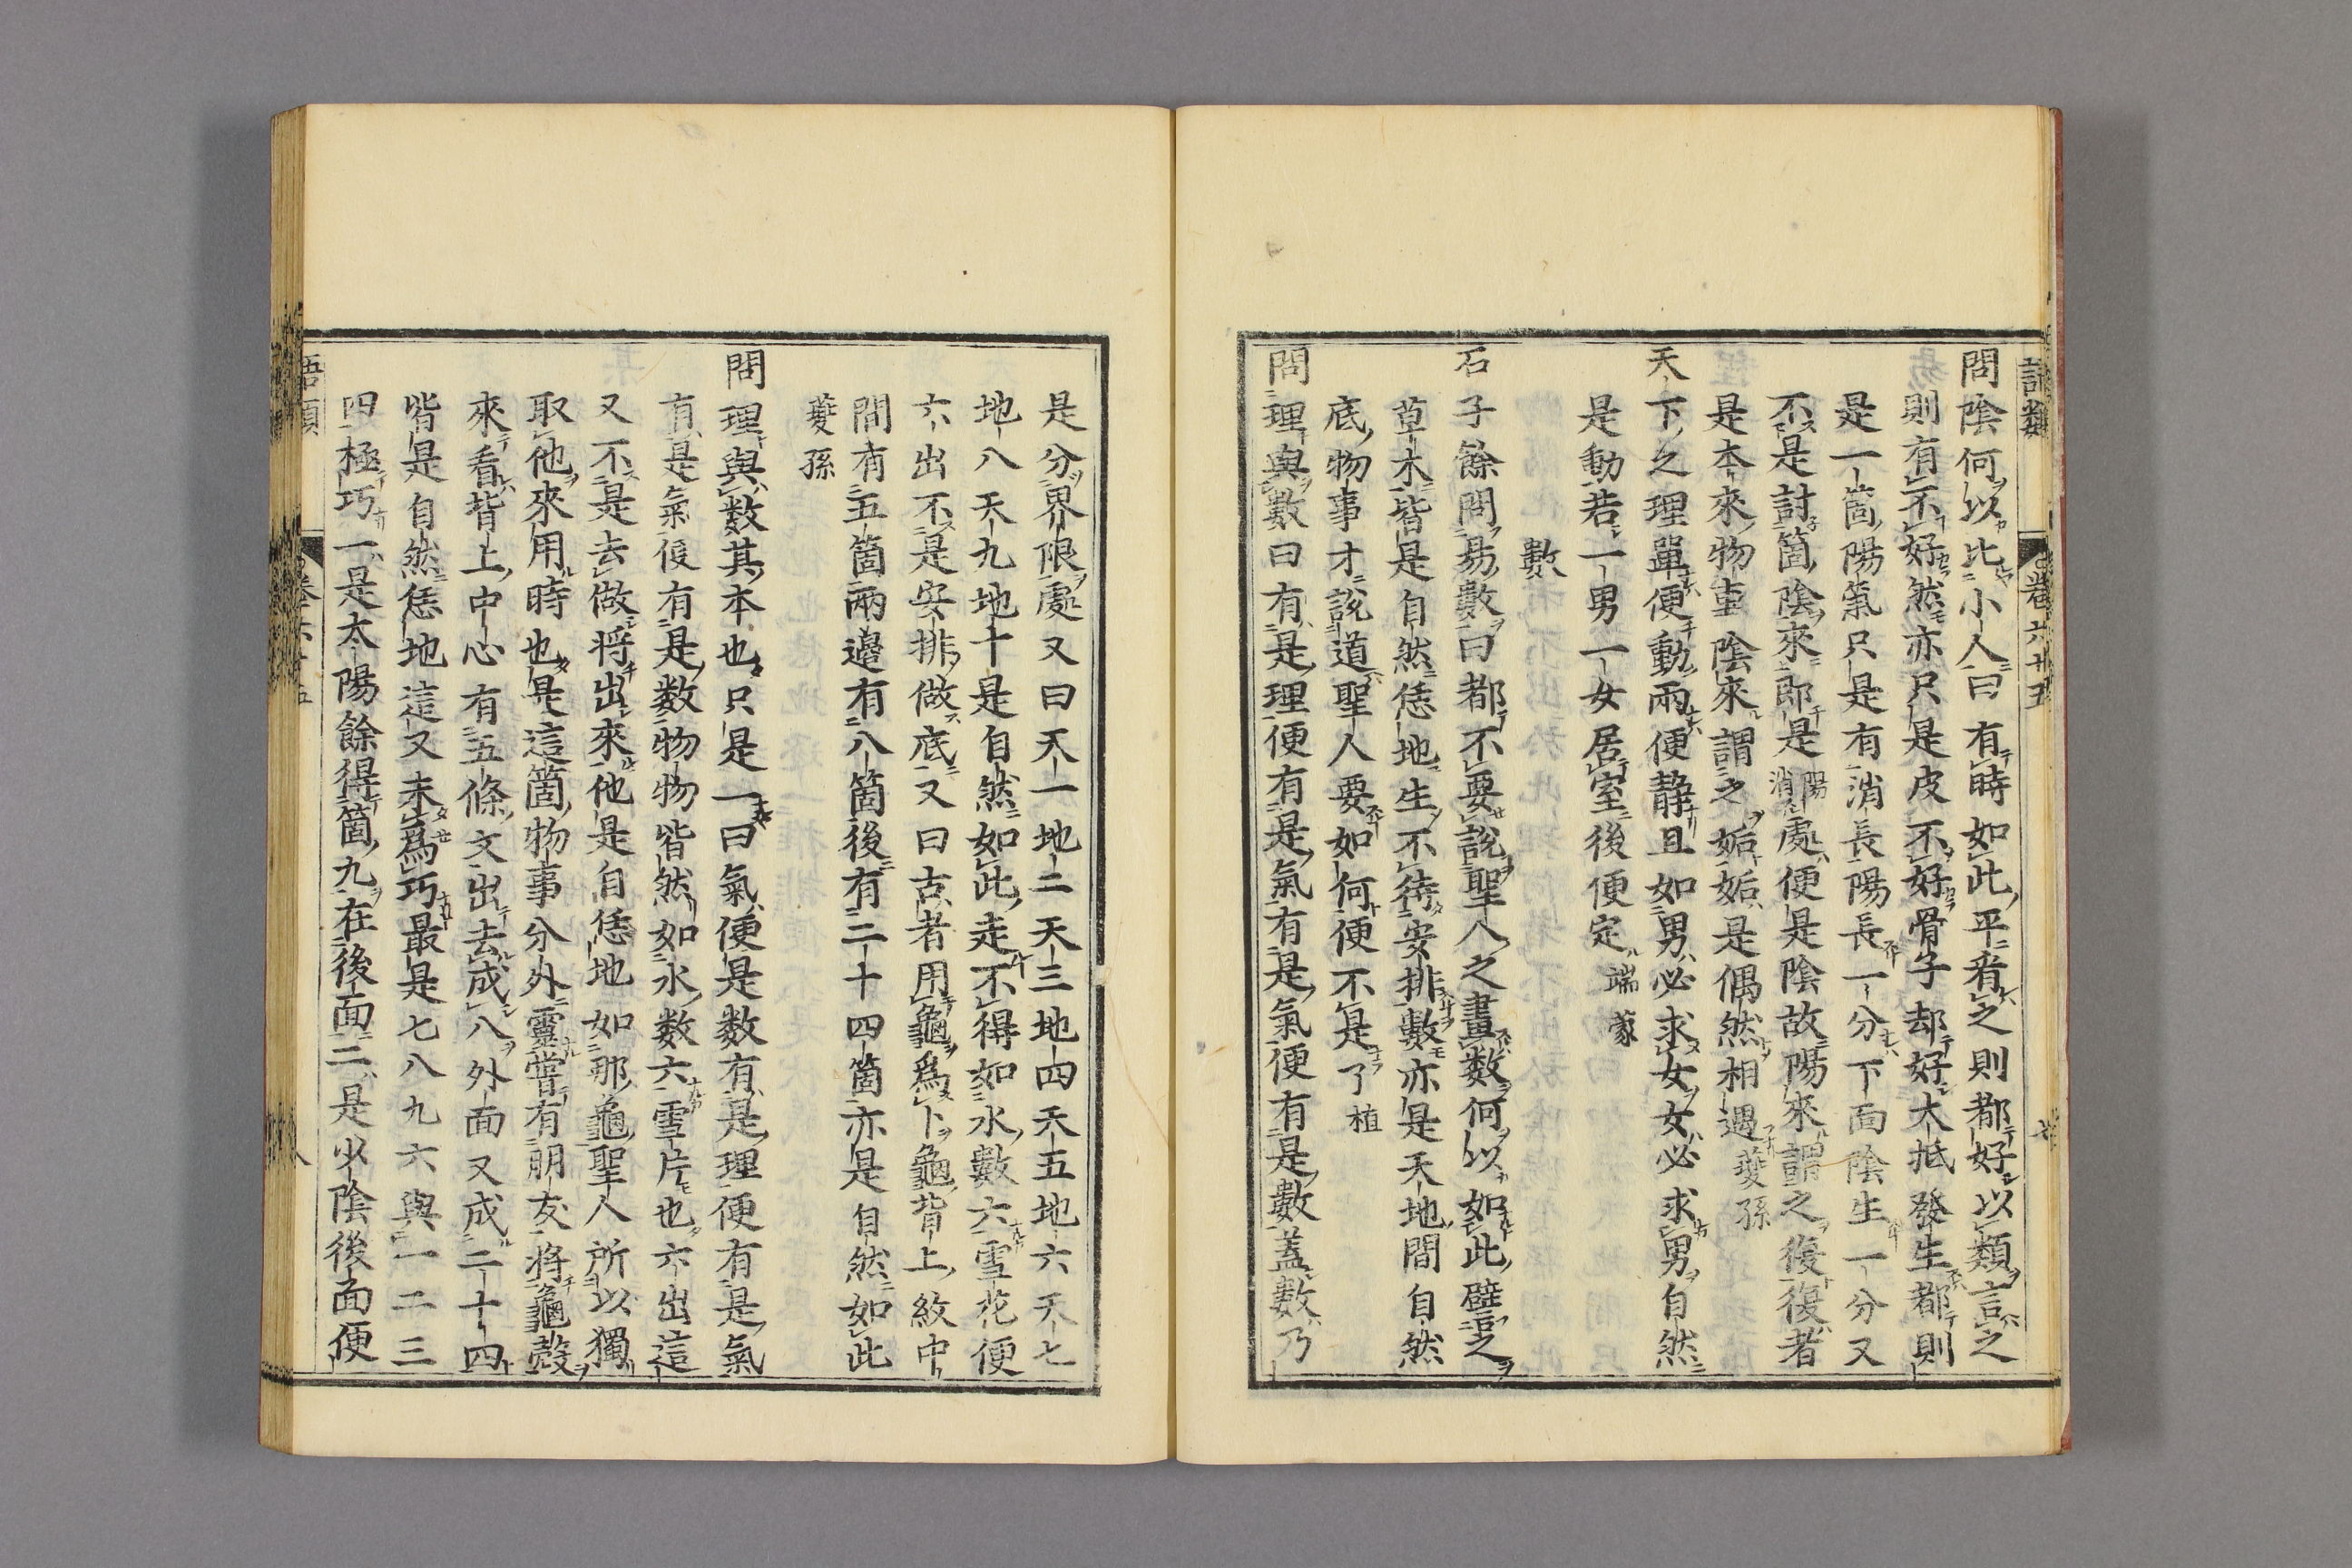 問陰何以比小人曰有時如此平看之則都好以類言之
則有不好然亦只是皮不好骨子却好大抵發生都則
是一箇陽氣只是有消長陽長一分下面陰生一分又
不是討箇陰來即是陽消處便是陰故陽來謂之復復者
是本來物事陰來謂之姤姤是偶然相遇夔孫
天下之理單便動兩便靜且如男必求女女必求男自然
是動若一男一女居室後便定端蒙
數
石子餘問易數曰都不要說聖人之畫数何以如此譬之
草木皆是自然恁地生不待安排數亦是天地間自然
底物事才說道聖人要如何便不是了植
問理與數曰有是理便有是氣有是氣便有是數蓋數乃
是分界限處又曰天一地二天三地四天五地六天七
地八天九地十是自然如此走不得如水數六雪花便
六出不是安排做底又曰古者用龜爲卜龜背上紋中
間有五箇兩邊有八箇後有二十四箇亦是自然如此
夔孫
問理與数其本也只是一曰氣便是数有是理便有是氣
有是氣便有是数物物皆然如水数六雪片也六出這
又不是去做將出來他是自恁地如那龜聖人所以獨
取他來用時也是這箇物事分外靈嘗有朋友將龜殼
來看背上中心有五條文出去成八外面又成二十四
皆是自然恁地這又未爲巧最是七八九六與一二三
四極巧一是太陽餘得箇九在後面二是少陰後面便
語類
卷六十五